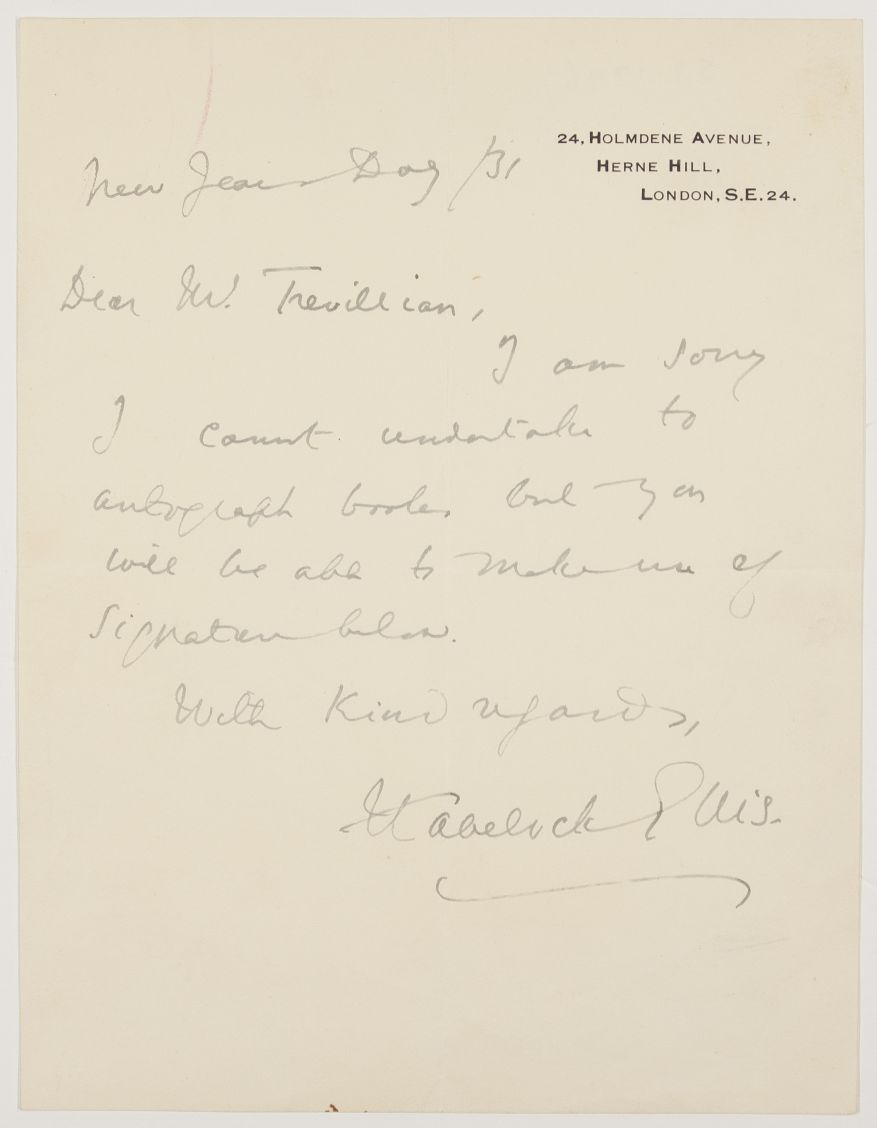 24, HOLMDENE AVENUE,
HERNE HILL,
LONDON, S.E.24.
New Years Day /31
Dear Mr. Trevillian,
I am sorry
I cannot undertake to
autograph books, but you
will be able to make use of
signature below.
With Kind regards,
Havelock Ellis.